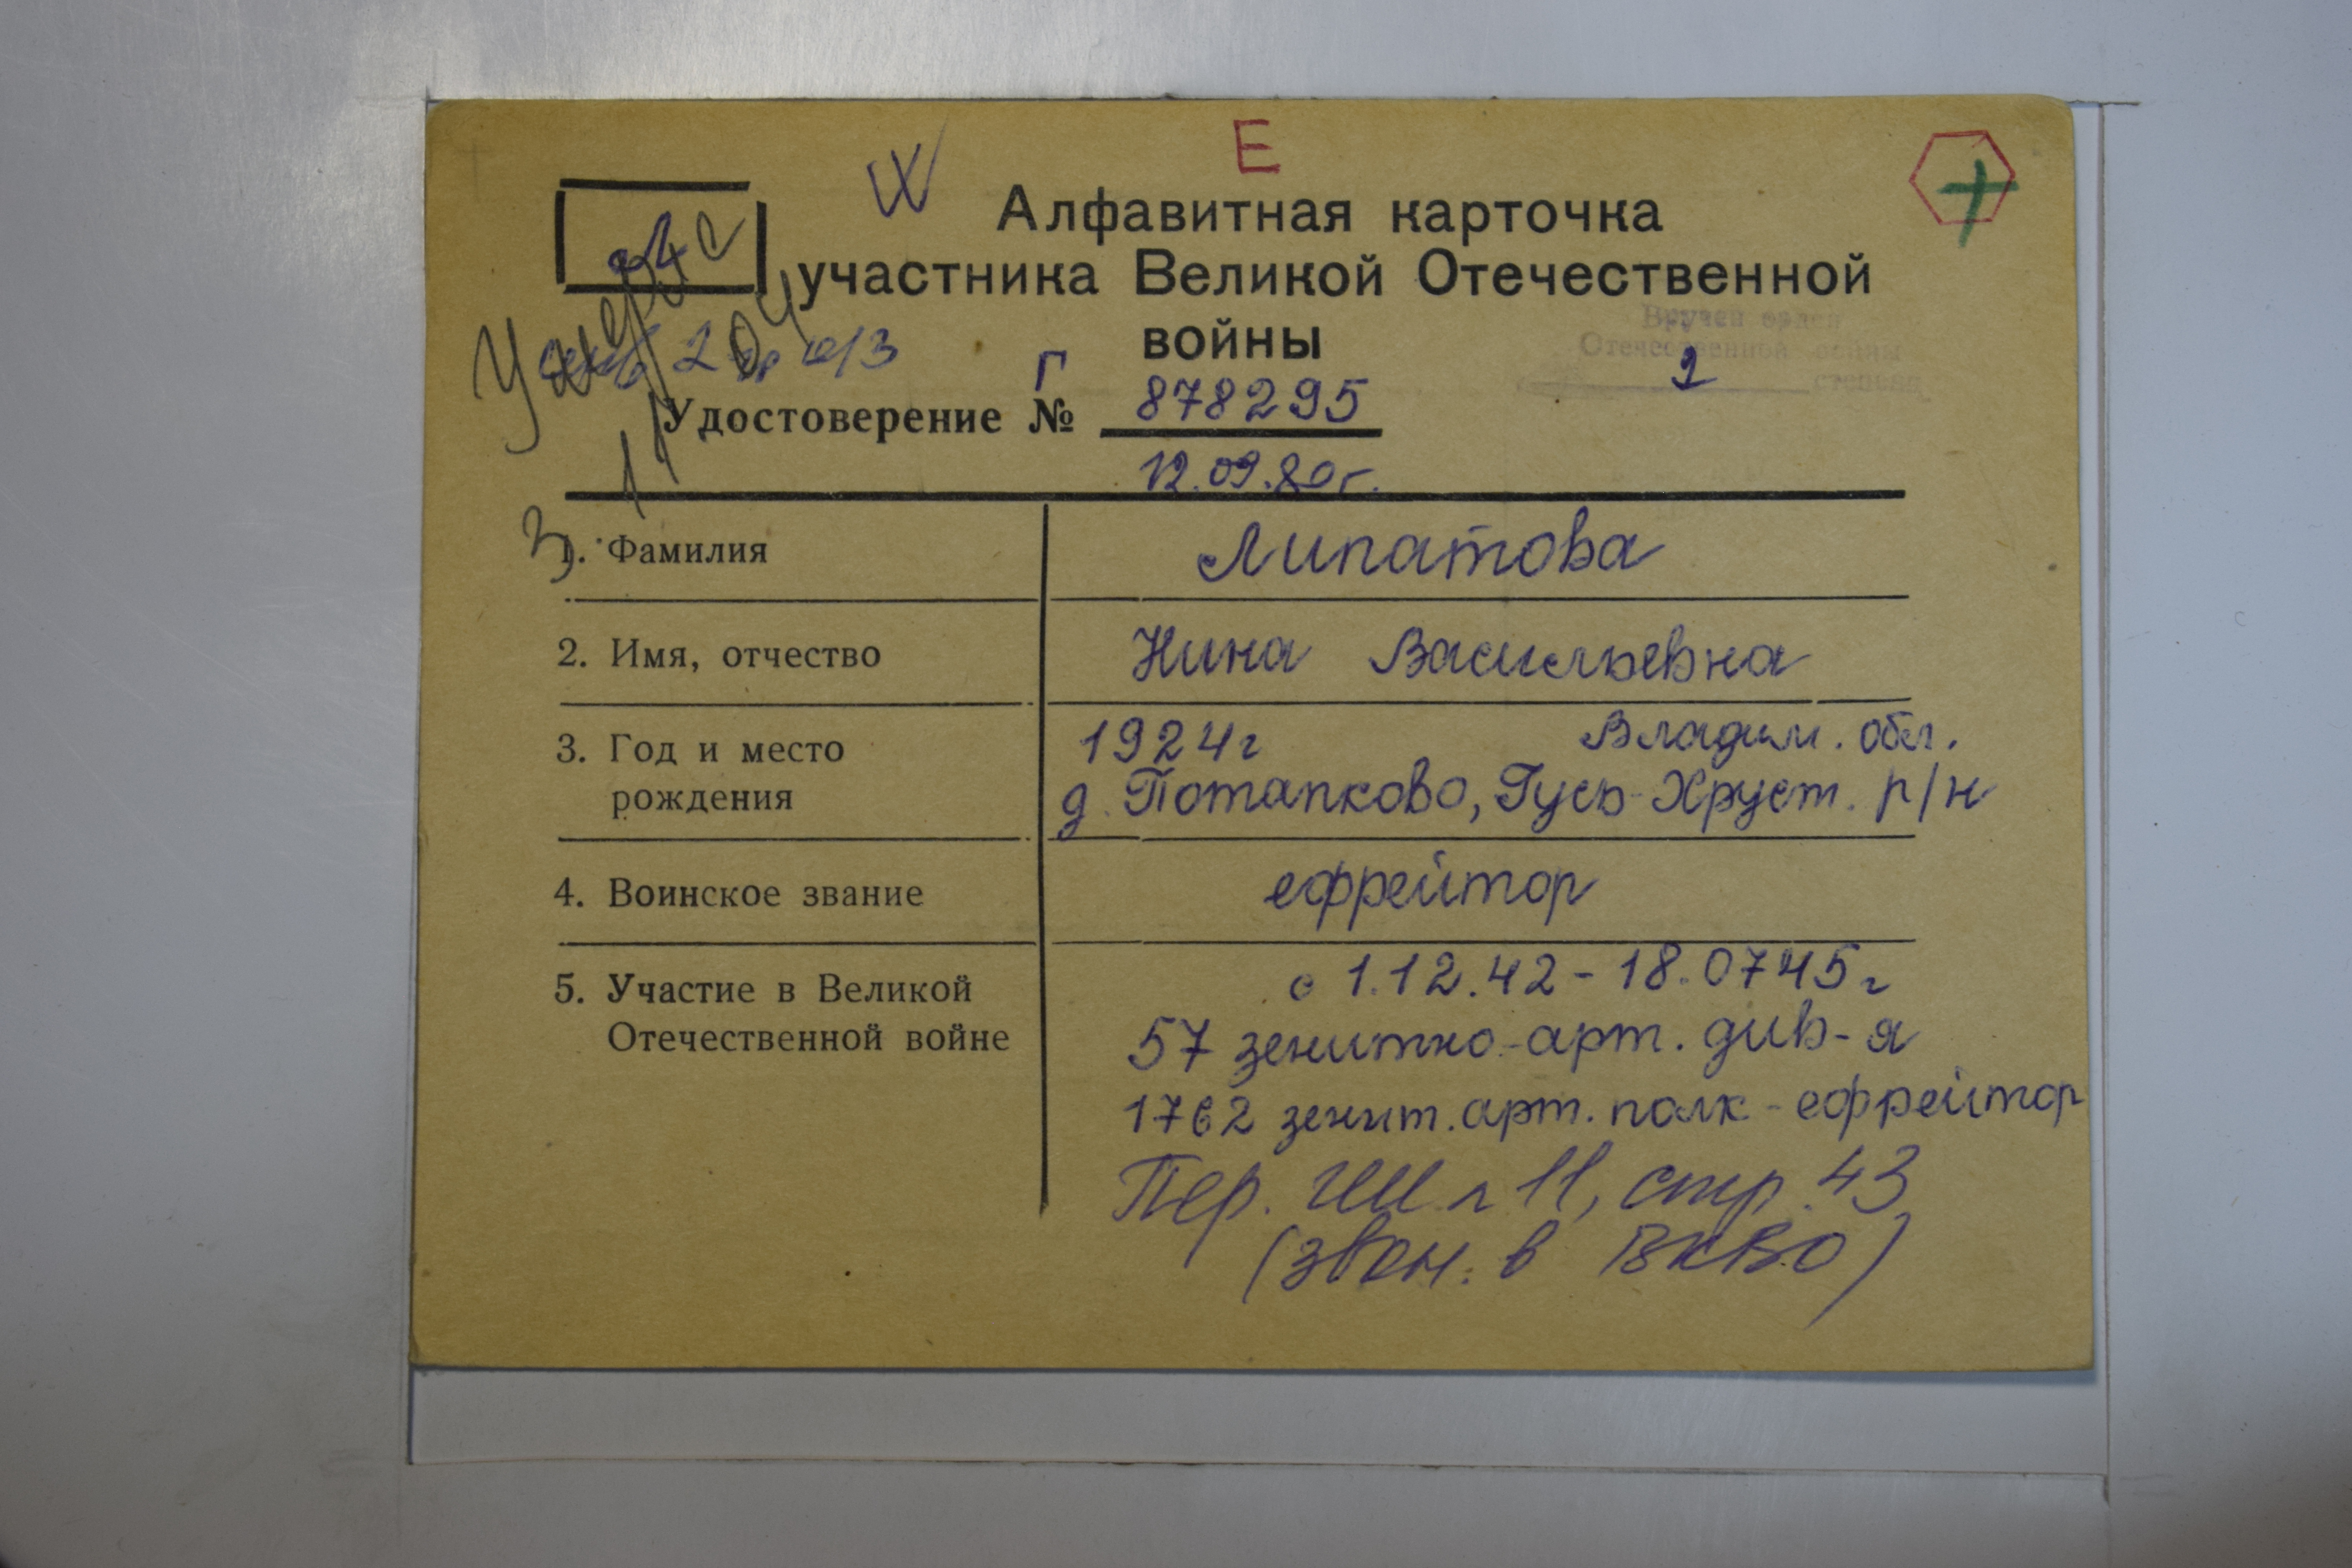 Е
Алфавитная карточка
участника Великой Отечественной
войны
Вручен орден
Отечественной войны
2 степени
Удостоверение Г № 878295
12.09.80г.
1. Фамилия Липатова
2. Имя, отчество Нина Васильевна
3. Год и место 1924г Владим. обл.
рождения д. Потапково, Гусь-Хруст. р/н
4. Воинское звание ефрейтор
5. Участие в Великой с 1.12.42 - 18.0745г
Отечественной войне 57 зенитно-арт. див-я
1762 зенит. арт. полк - ефрейтор
Пер. 11, стр. 43
(звон. в ВКВО)